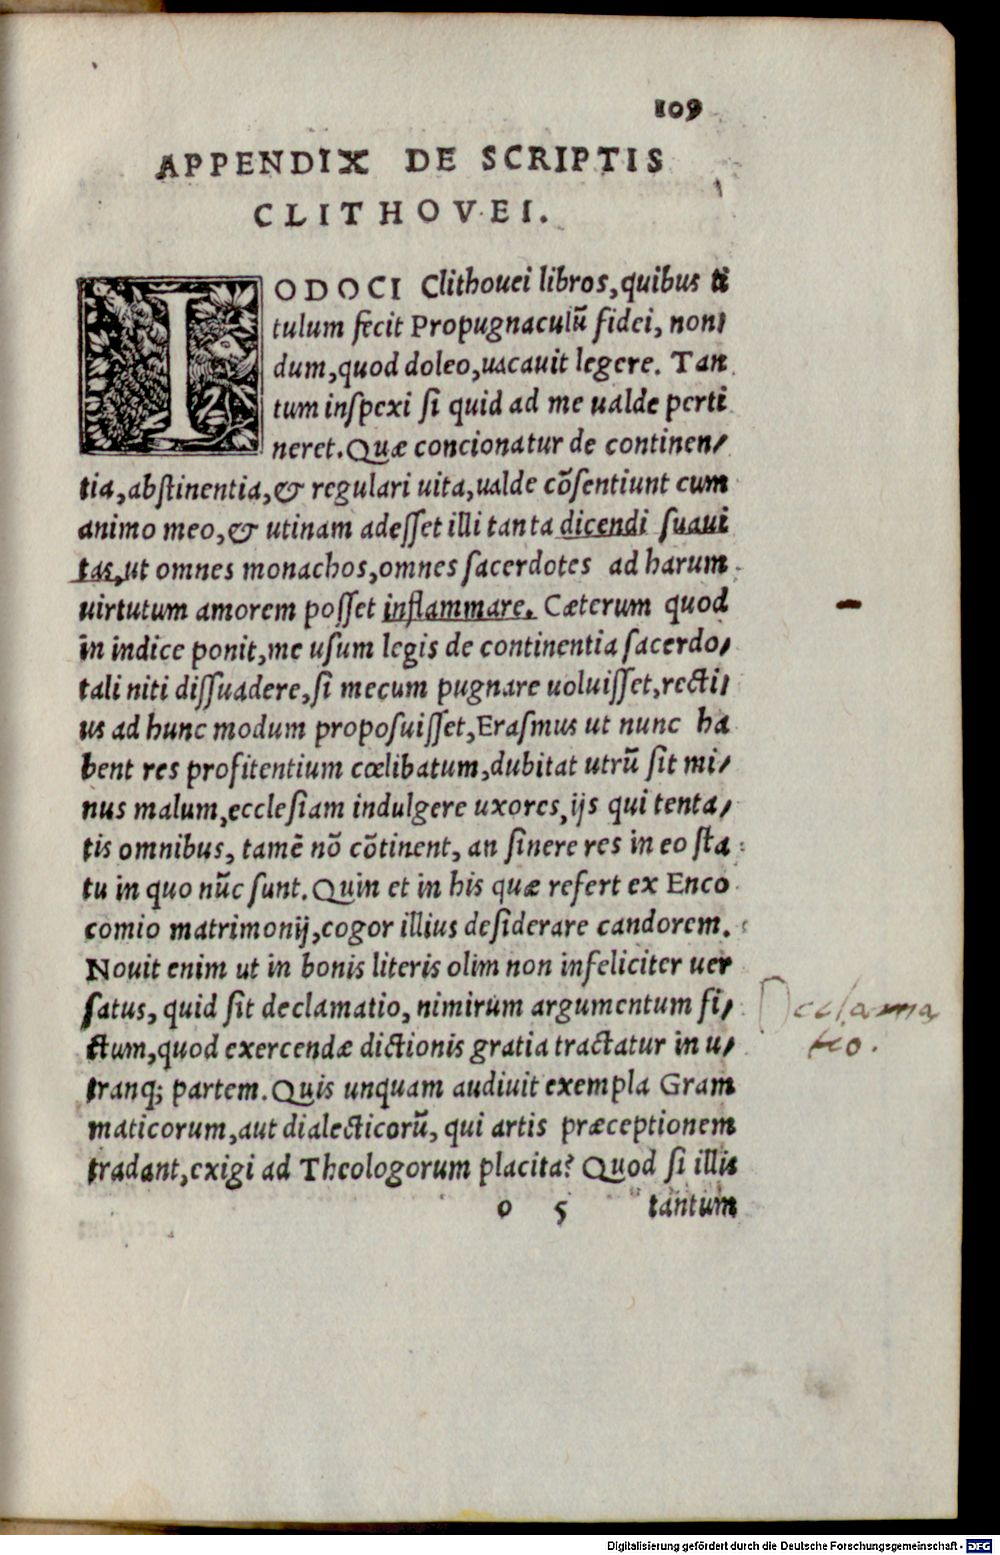 109
APPENDIX DE SCRIPTIS
CLITHOVEI.
IODOCI Clithouei libros, quibus ti
tulum fecit Propugnaculū fidei, non/
dum, quod doleo, uacauit legere. Tan
tum inſpexi ſi quid ad me ualde perti
neret. Quæ concionatur de continen/
tia, abſtinentia, & regulari uita, ualde cōſentiunt cum
animo meo, & utinam adeſſet illi tanta dicendi ſuaui
tas, ut omnes monachos, omnes ſacerdotes ad harum
uirtutum amorem poſſet inflammare. Cæterum quod
in indice ponit, me uſum legis de continentia ſacerdo/
tali niti diſſuadere, ſi mecum pugnare uoluiſſet, recti/
us ad hunc modum propoſuiſſet, Eraſmus ut nunc ha
bent res profitentium cœlibatum, dubitat utrū ſit mi/
nus malum, eccleſiam indulgere uxores, ijs qui tenta/
tis omnibus, tamē nō cōtinent, an ſinere res in eo ſta
tu in quo nūc ſunt. Quin et in his quæ refert ex Enco
comio matrimonij, cogor illius deſiderare candorem.
Nouit enim ut in bonis literis olim non infeliciter uer
ſatus, quid ſit declamatio, nimirum argumentum fi/
ctum, quod exercendæ dictionis gratia tractatur in u/
tranq; partem. Quis unquam audiuit exempla Gram
maticorum, aut dialecticorū, qui artis præceptionem
tradant, exigi ad Theologorum placita? Quod ſi illis
o 5 tantum
Declama
tio.
Digitalisierung gefördert durch die Deutsche Forschungsgemeinschaft - DFG